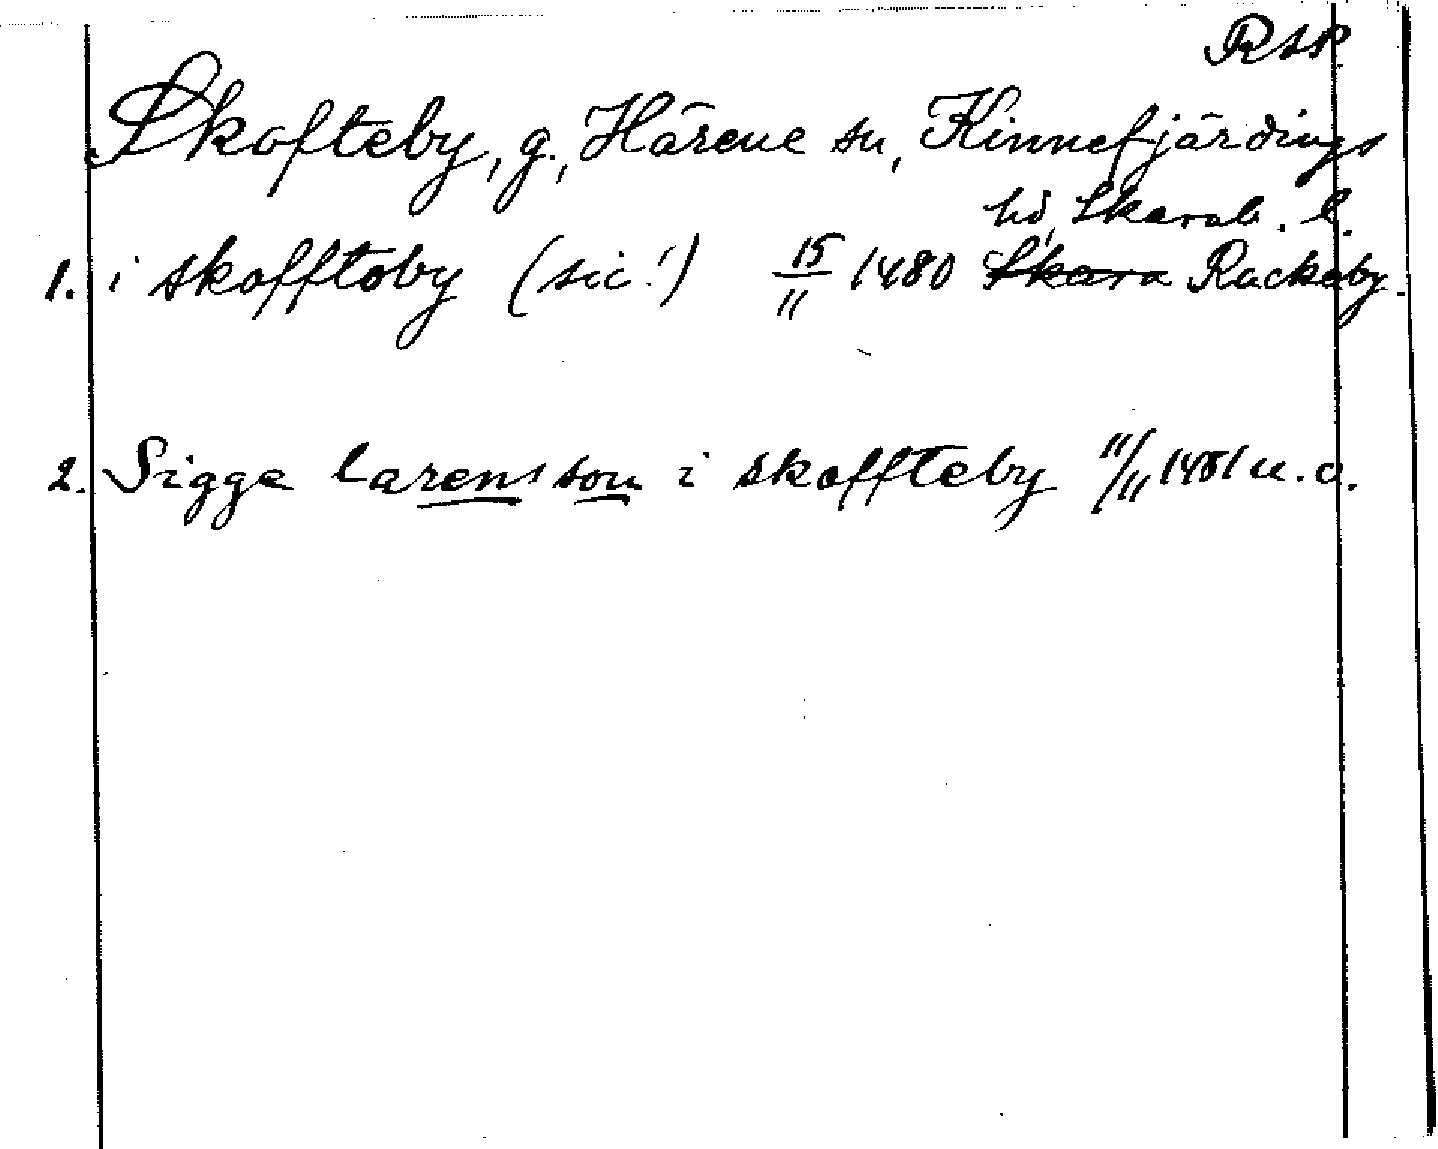 RAP
Skofteby, g., Härene sn, Kinnefjärdings
hd, Skarab. l.
1. i skofftoby (sic!) 15/11 1480 Skara Rackeby.
2. Sigge larensson i skoffteby 11/11 1481 u. o.